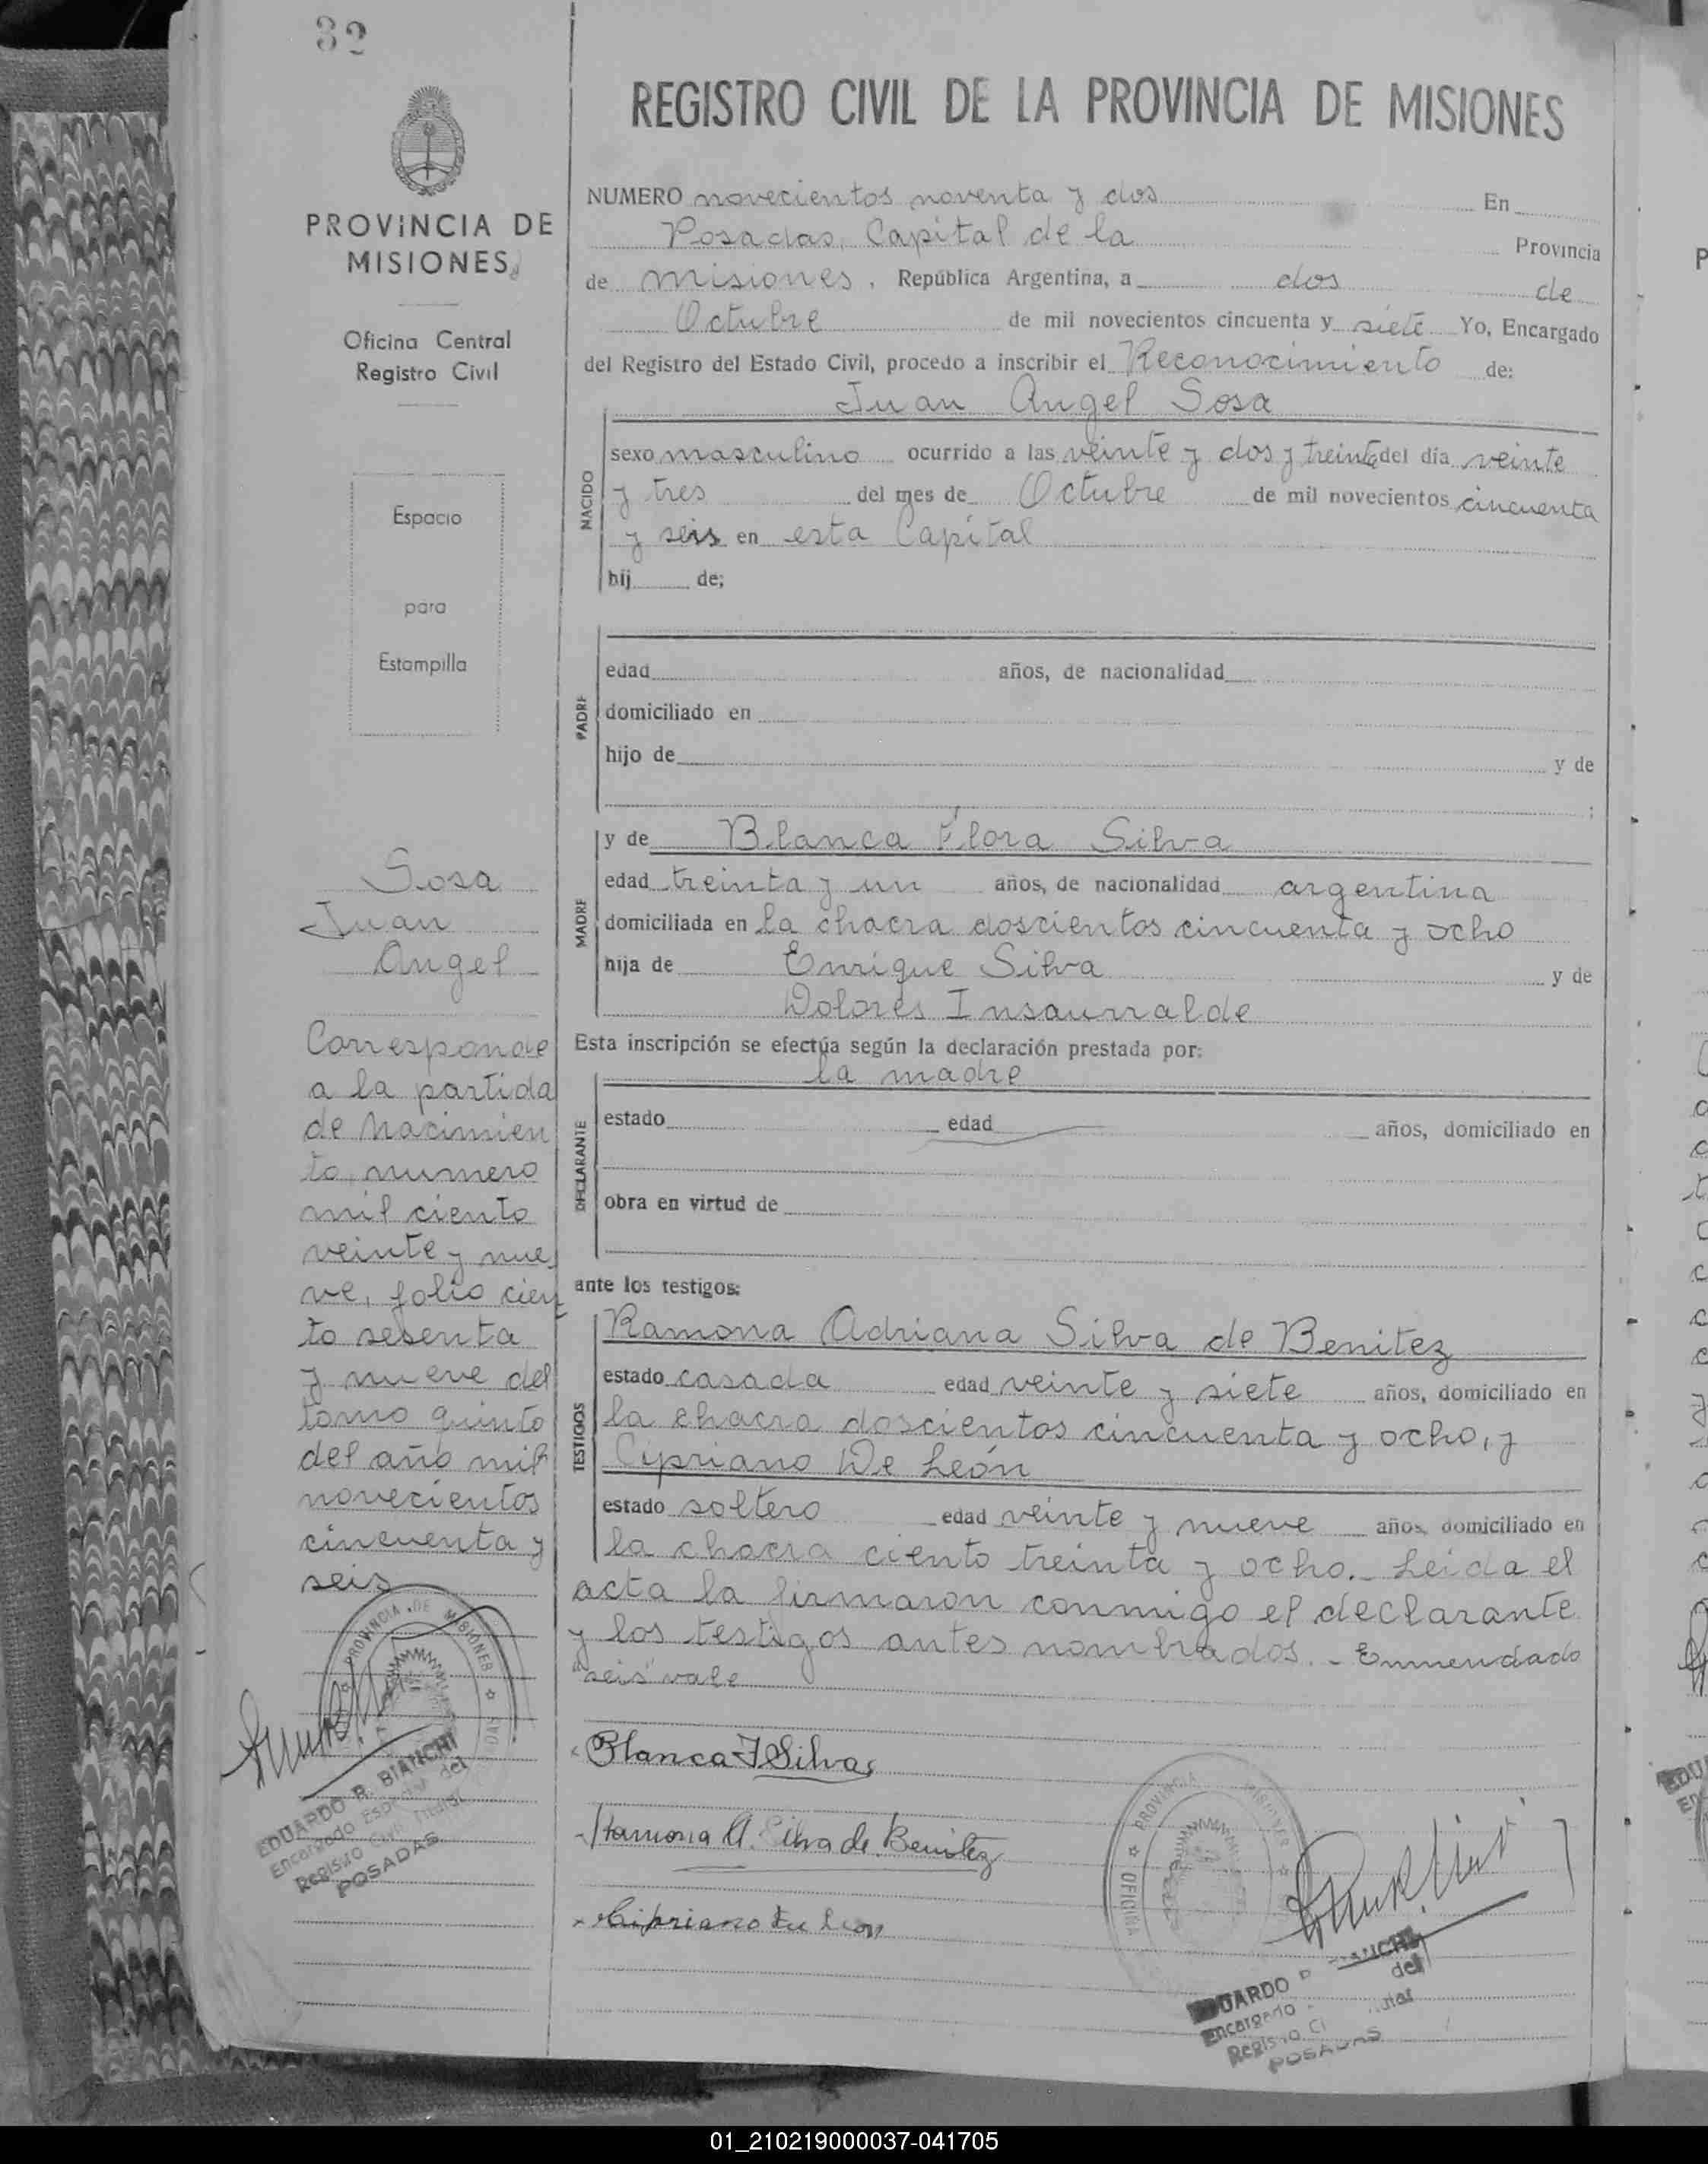 32
PROVINCIA DE
MISIONES
Oficina Central
Registro Civil
Espacio
para
Estampilla
Sosa
Juan
Angel
Corresponde
a la partida
de nacimien
to, numero
mil ciento
veinte y nue
ve, folio cien
to sesenta
y nueve del
tomo quinto
del año mil
novecientos
cincuenta y
seis
PROVINCIA DE MISIONES
EDUARDO R. BIANCHI
Encargado Especial del
Registro Civil Titular
POSADAS
REGISTRO CIVIL DE LA PROVINCIA DE MISIONES
NUMERO novecientos noventa y dos En
Posadas, Capital de la Provincia
de misiones, República Argentina, a dos de
Octubre de mil novecientos cincuenta y siete Yo, Encargado
del Registro del Estado Civil, procedo a inscribir el Reconocimiento de:
Juan Angel Sosa
NACIDO
sexo masculino ocurrido a las veinte y dos y treinta del día veinte
y tres del mes de Octubre de mil novecientos cincuenta
y seis en esta Capital
hij de;
PADRE
edad años, de nacionalidad
domiciliado en
hijo de y de
;
MADRE
y de Blanca Flora Silva
edad treinta y un años, de nacionalidad argentina
domiciliada en la chacra doscientos cincuenta y ocho
hija de Enrique Silva y de
Dolores Insaurralde
Esta inscripción se efectúa según la declaración prestada por:
la madre
DECLARANTE
estado edad años, domiciliado en
obra en virtud de
ante los testigos:
TESTIGOS
Ramona Adriana Silva de Benitez
estado casada edad veinte y siete años, domiciliado en
la chacra doscientos cincuenta y ocho, y
Cipriano De León
estado soltero edad veinte y nueve años, domiciliado en
la chacra ciento treinta y ocho. Leida el
acta la firmaron conmigo el declarante
y los testigos antes nombrados. - Enmendado
"seis" vale
Blanca F Silva
Ramona A. Silva de Benitez
Cipriano De Leon
PROVINCIA MISIONES
OFICINA
EDUARDO R BIANCHI
Encargado del
Registro Ci
POSADAS
01_210219000037-041705